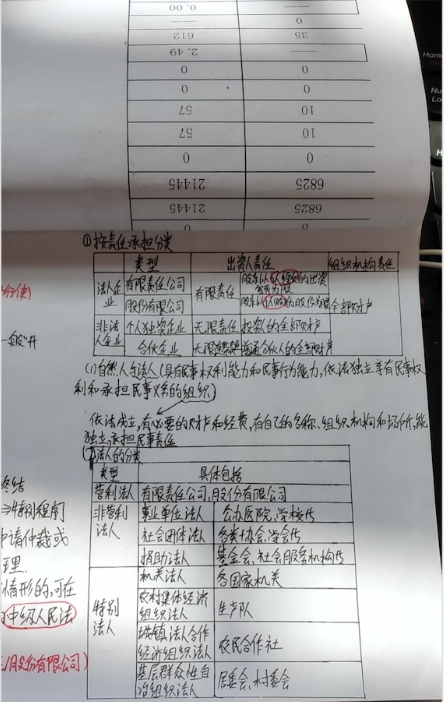 0.00 —
612 35
2.49 —
0 0
0 0
57 10
57 10
0 0
21445 6825
21445 6825
①按责任承担分类
类型 出资人责任 组织机构责任
法人企业 有限责任公司 有限责任 股东以认缴的出资额为限 全部财产
股份有限公司 股东以认购的股份为限
非法人企业 个人独资企业 无限责任 投资人的全部财产
合伙企业 无限连带 普通合伙人的全部财产
(1)自然人与法人(具有民事权利能力和民事行为能力,依法独立享有民事权
利和承担民事义务的组织)
依法成立,有必要的财产和经费,有自己的名称、组织机构和场所,能
独立承担民事责任
法人的分类
类型 具体包括
营利法人 有限责任公司,股份有限公司
非营利法人 事业单位法人 公办医院,学校代
社会团体法人 各类协会,学会代
捐助法人 基金会,社会服务机构代
特别法人 机关法人 各国家机关
农村集体经济组织法人 生产队
城镇农村合作经济组织法人 农民合作社
基层群众性自治组织法人 居委会,村委会
终结
特别程序
申请仲裁或
理
情形的,可在
中级人民法
股份有限公司)